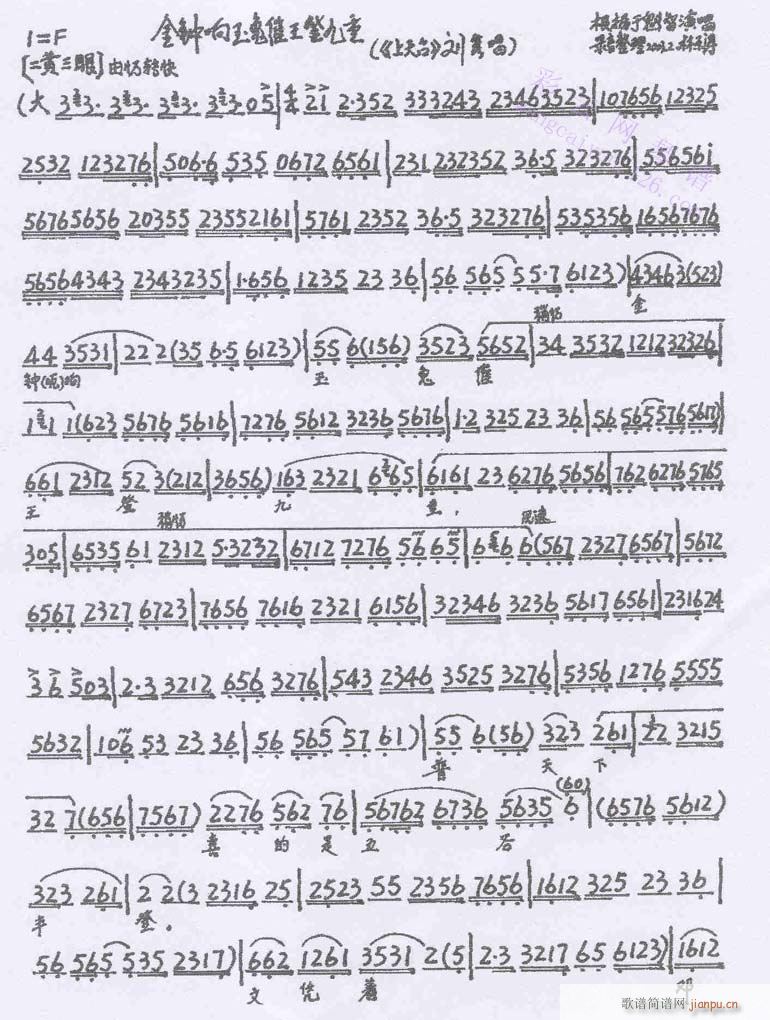 1=F 金钟响玉兔催王登九重
(《上天台》刘秀唱)
根据于魁智演唱
[二黄三眼] 由慢转快
2532 123276|506·6 535 0672 6561|231 232352 36·5 323276|556561
56765656 20355 23552161|5761 2352 36·5 323276|535356 16567676
56564343 2343235|1·656 1235 23 36|56 565 55·7 6123)|43463(523)
金
稍慢
44 3531|22 2(35 6·5 6123)|55 6(156) 3523 5652|34 3532 1212 32326|
钟(呃)响 玉 兔 催
1 1(623 5676 5616|7276 5612 3236 5676|1·2 325 23 36|56 565 576 5617)|
661 2312 52 3(212|3656) 163 2321 6 65|6161 23 6276 5656|762 6276 5765
王 登 九 重,
稍慢
305|6535 61 2312 5·3232|6712 7276 56 65|6 6 6(567 2327 6567|5672
6567 2327 6723|7656 7616 2321 6156|32346 3236 5617 6561|231624
36 503|2·3 3212 656 3276|543 2346 3525 3276|5356 1276 5555
5632|106 53 23 36|56 565 57 61)|55 6(56) 323 261|22 3215
普 天 下
(60)
32 7(656|7567) 2276 562 76|56762 6736 5635 6|(6576 5612)
喜 的 是 五 谷
323 261|22(3 2316 25|2523 55 2356 7656|1612 325 23 36|
丰 登。
56 565 535 2317)|662 1261 3531 2(5|2·3 3217 65 6123)|1612
文 凭 着 邓
歌谱简谱网
jianpu.cn